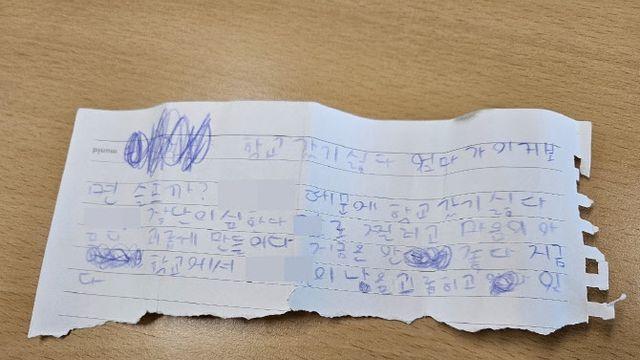 학교 가기 싫다 엄마가 이거보
면 슬프까? 때문에 학교 가기 싫다
장난이 심하다 를 찔리고 마음의 아
프고 괴롭게 만들이다 지금은 안 좋다 지금
학교에서 이 나를 놀리고 있
다